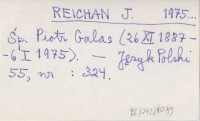 REICHAN J. 1975...
Śp. Piotr Galas (26 XI 1887-
-6 I 1975). — Język Polski
55, nr : 324.